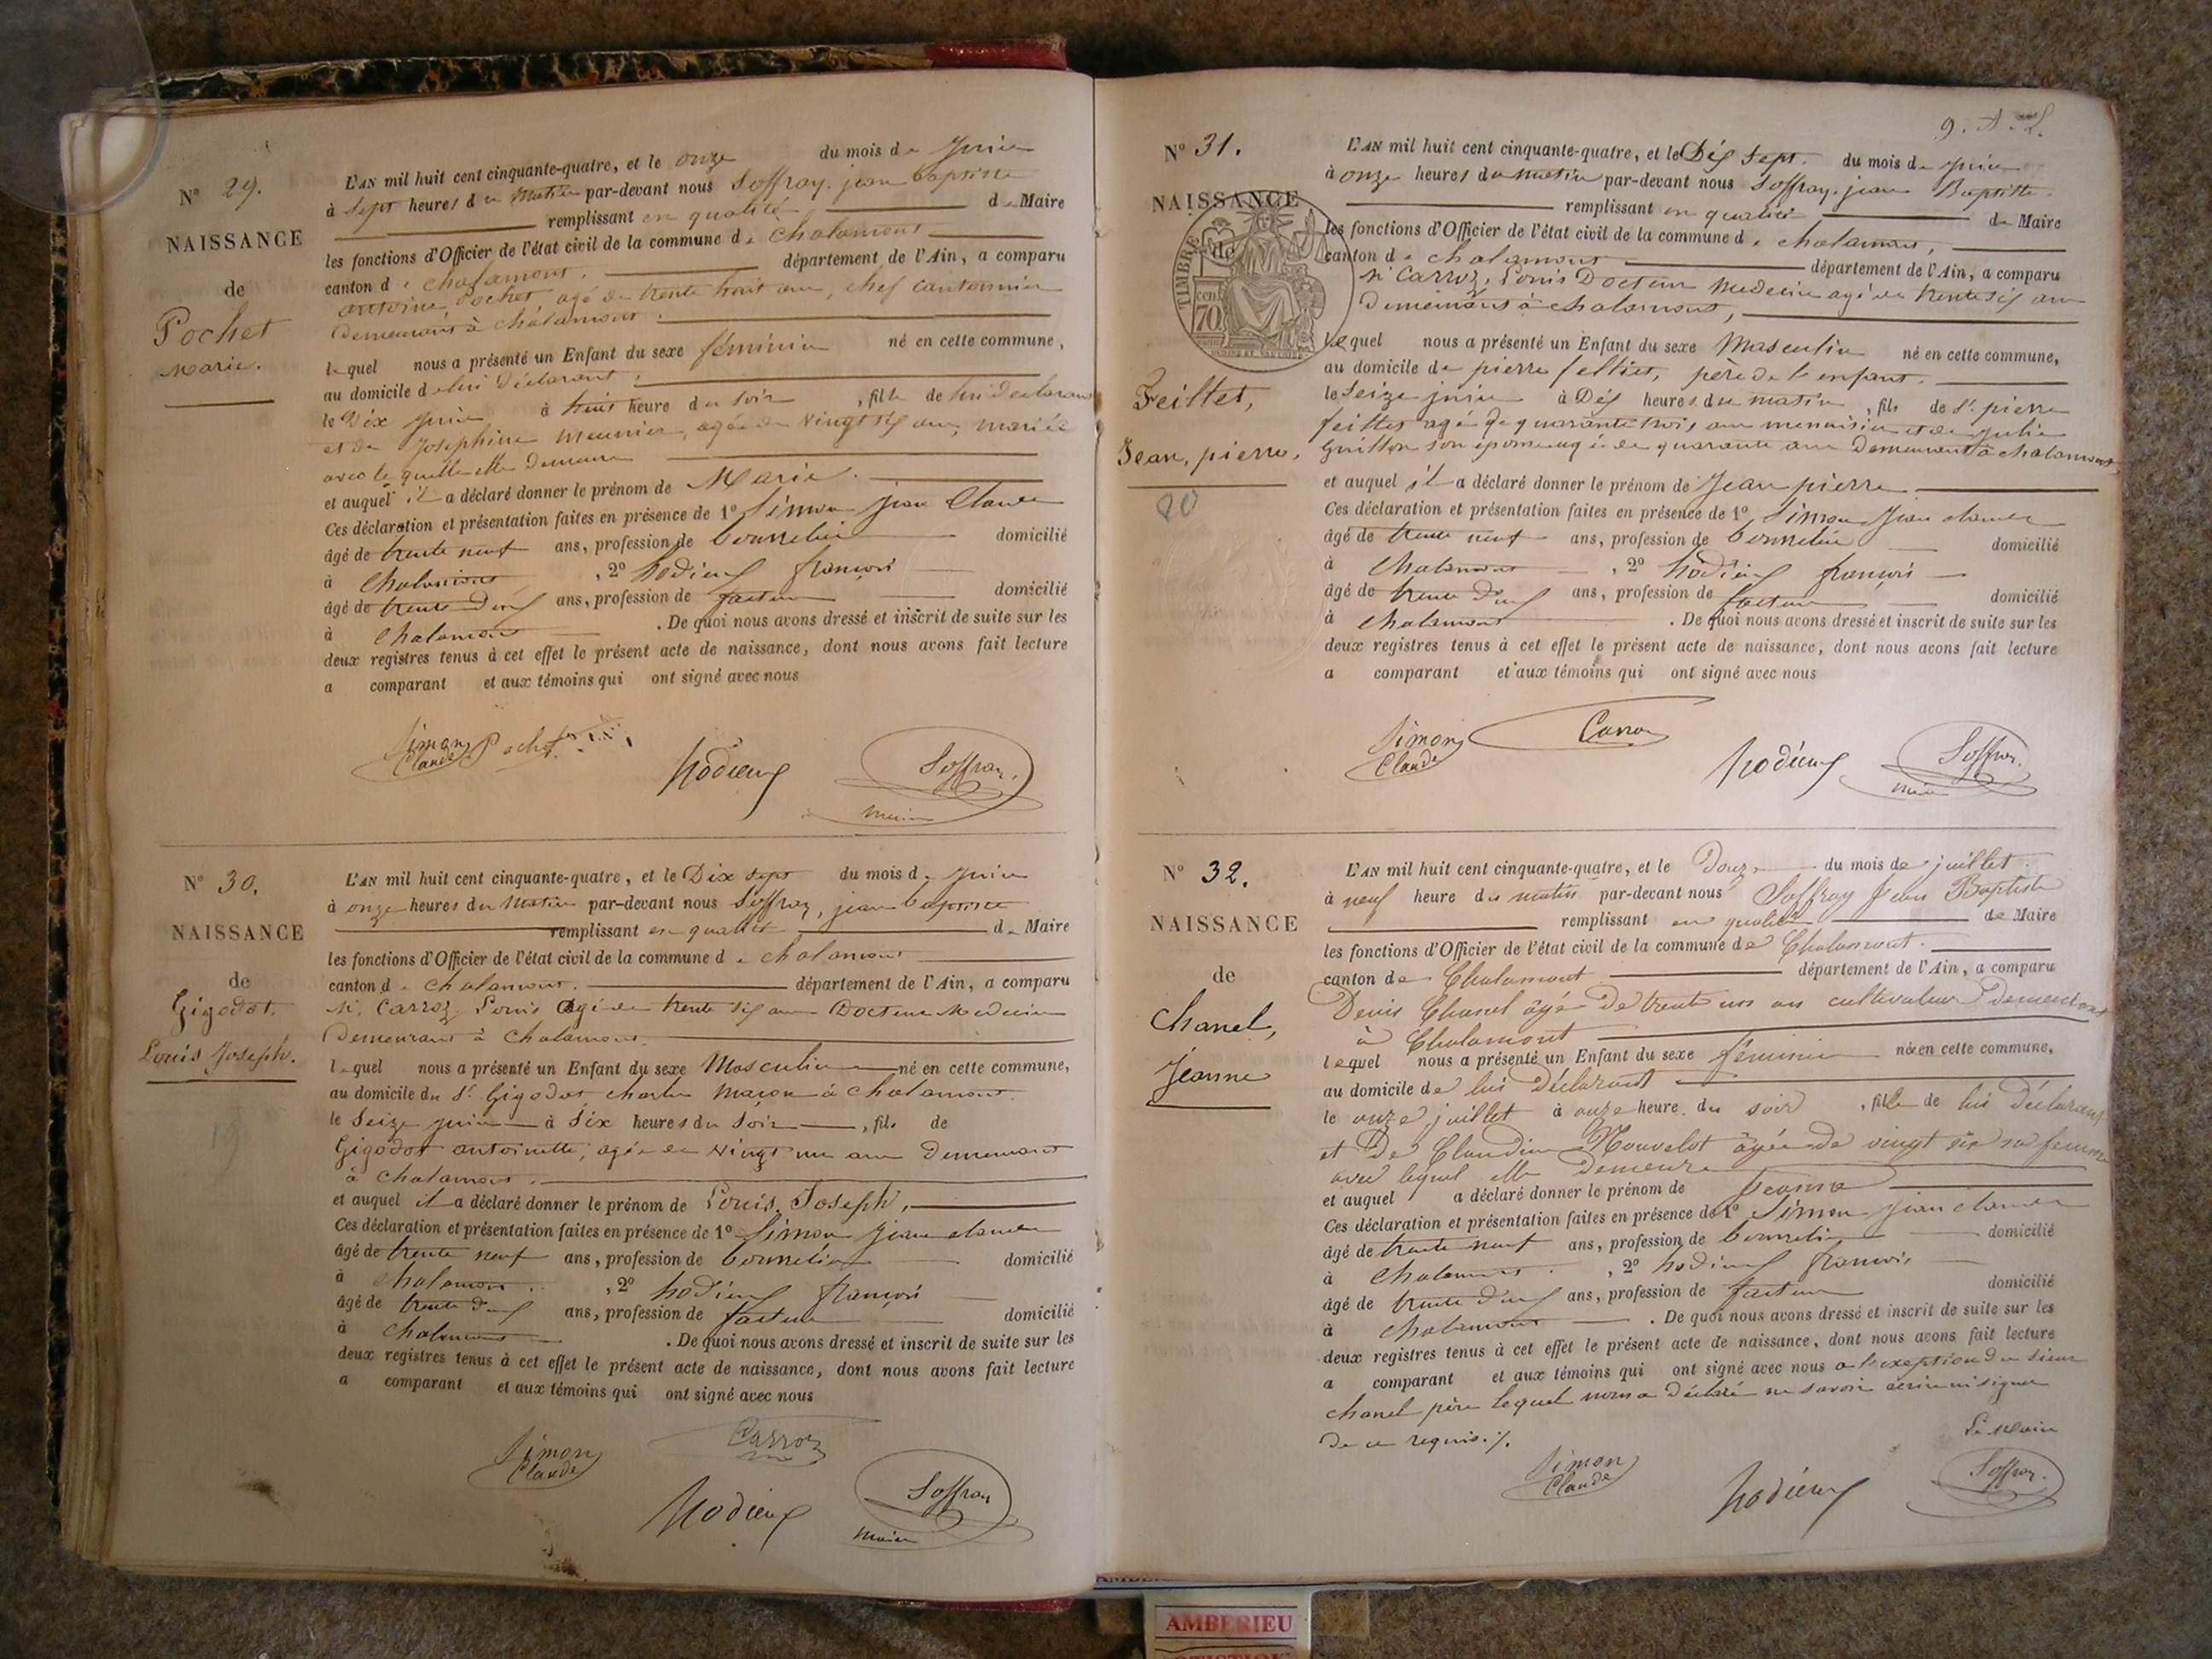 N° 29.
NAISSANCE
de
Pochet
Marie.
L'AN mil huit cent cinquante-quatre, et le onze du mois de Juin
à Sept heures du Matin par-devant nous Soffray, jean baptiste
remplissant en qualité de Maire
les fonctions d'Officier de l'état civil de la commune de chalamont
canton de chalamont. département de l'Ain, a comparu
antoine Pochet, agé de trente huit ans, chef cantonnier
Demeurant à chalamont.
lequel nous a présenté un Enfant du sexe féminin né en cette commune,
au domicile de lui Déclarant.
le Dix Juin à huit heure du soir, fille de lui declarant
et de Josephine Meunier, agée de vingt six ans, mariée
avec le quelle elle Demeure
et auquel il a déclaré donner le prénom de Marie.
Ces déclaration et présentation faites en présence de 1° Simon jean Claude
âgé de trente neuf ans, profession de bourrelier domicilié
à Chalamont, 2° hodieux françois
âgé de trente deux ans, profession de facteur domicilié
à chalamont. De quoi nous avons dressé et inscrit de suite sur les
deux registres tenus à cet effet le présent acte de naissance, dont nous avons fait lecture
a comparant et aux témoins qui ont signé avec nous
Simon Claude Pochet
hodieux Soffray
maire
N° 30.
NAISSANCE
de
Gigodot.
Louis Joseph.
19
L'AN mil huit cent cinquante-quatre, et le Dix sept du mois de Juin
à onze heures du Matin par-devant nous Soffray, jean baptiste
remplissant en qualité de Maire
les fonctions d'Officier de l'état civil de la commune de chalamont
canton de chalamont. département de l'Ain, a comparu
Mr. Carroz, Louis agé de trente six ans Docteur Medecin
Demeurant à Chalamont.
lequel nous a présenté un Enfant du sexe Masculin né en cette commune,
au domicile du Sr. Gigodot charles maçon à Chalamont.
le Seize juin à Six heures du Soir, fils de
Gigodot antoinette, agée de vingt un ans Demeurant
à chalamont.
et auquel il a déclaré donner le prénom de Louis, Joseph,
Ces déclaration et présentation faites en présence de 1° Simon Jean claude
âgé de trente neuf ans, profession de bourrelier domicilié
à chalamont, 2° hodieux françois
âgé de trente deux ans, profession de facteur domicilié
à chalamont. De quoi nous avons dressé et inscrit de suite sur les
deux registres tenus à cet effet le présent acte de naissance, dont nous avons fait lecture
a comparant et aux témoins qui ont signé avec nous
Simon Claude Carroz
hodieux Soffray
maire
9.
N° 31.
NAISSANCE
de
TIMBRE
70
Feillet,
Jean, pierre.
20
L'AN mil huit cent cinquante-quatre, et le Dix Sept. du mois de Juin
à onze heures du matin par-devant nous Soffray, jean Baptiste.
remplissant en qualité de Maire
les fonctions d'Officier de l'état civil de la commune de chalamont,
canton de chalamont département de l'Ain, a comparu
Mr Carroz, Louis Docteur Medecin agé de trente six ans
Demeurant à chalamont,
lequel nous a présenté un Enfant du sexe Masculin né en cette commune,
au domicile de pierre feillet, père de l'enfant.
le Seize juin à Dix heures du matin, fils de Sr. pierre
feillet agé de quarante trois ans menuisier et de Julie
Guillon son épouse agée de quarante ans Demeurant à chalamont
et auquel il a déclaré donner le prénom de Jean pierre
Ces déclaration et présentation faites en présence de 1° Simon Jean claude
âgé de trente neuf ans, profession de bourrelier domicilié
à Chalamont, 2° hodieux françois
âgé de trente deux ans, profession de facteur domicilié
à chalamont. De quoi nous avons dressé et inscrit de suite sur les
deux registres tenus à cet effet le présent acte de naissance, dont nous avons fait lecture
a comparant et aux témoins qui ont signé avec nous
Simon Claude Carroz
hodieux Soffray
maire
N° 32.
NAISSANCE
de
Chanel,
Jeanne
L'AN mil huit cent cinquante-quatre, et le Douze du mois de juillet.
à neuf heure du matin par-devant nous Soffray Jean Baptiste
remplissant en qualité de Maire
les fonctions d'Officier de l'état civil de la commune de Chalamont.
canton de Chalamont département de l'Ain, a comparu
Denis Chanel âgé de trente un an cultivateur Demeurant
à Chalamont
lequel nous a présenté un Enfant du sexe féminin née en cette commune,
au domicile de lui Déclarant
le onze juillet à onze heure du soir, fille de lui Déclarant
et De Claudine Mouvelot âgée de vingt six sa femme
avec lequel elle Demeure
et auquel a déclaré donner le prénom de Jeanne
Ces déclaration et présentation faites en présence de 1° Simon jean claude
âgé de trente neuf ans, profession de bourrelier domicilié
à Chalamont, 2° hodieux francois
âgé de trente deux ans, profession de facteur domicilié
à chalamont. De quoi nous avons dressé et inscrit de suite sur les
deux registres tenus à cet effet le présent acte de naissance, dont nous avons fait lecture
a comparant et aux témoins qui ont signé avec nous a l'exeption du sieur
chanel père lequel nous a déclaré ne savoir ecrire ni signer
de ce requis./.
Le Maire
Simon Claude hodieux Soffray.
AMBERIEU